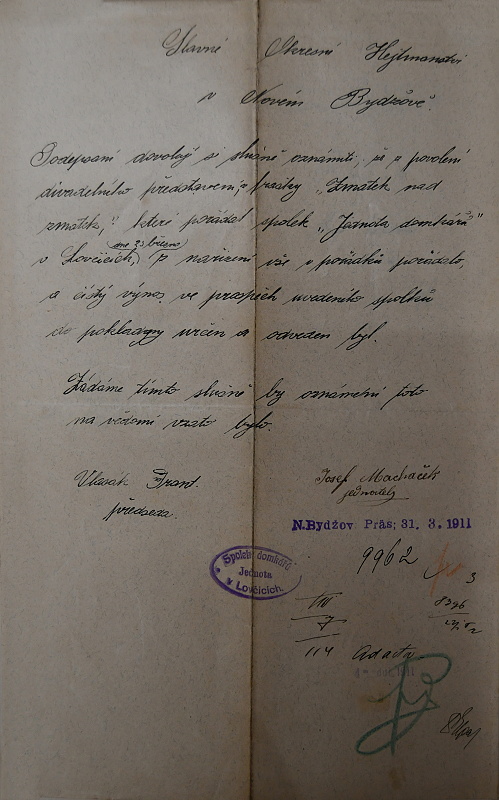 Slavné Okresní Hejtmanství
v Novém Bydžově.
Podepsaní dovolují si slušně oznámiti, že z povolení
divadelního představení, frašky „Zmatek nad
zmatek," které pořádal spolek „Jednota domkářů"
v Lovčicích, dne 25 března z nařízení vše v pořádku pořádalo,
a čistý výnos ve prospěch uvedeného spolku
do pokladny určen a odveden byl.
Žádáme tímto slušně by oznámení toto
na vědomí vzato bylo.
Vlasák Frant.
předseda.
Josef Machaček
jednatel
N.Bydžov Präs; 31. 3. 1911
9962
3
Spolek domkářů
Jednota
v Lovčicích.
110
7
114
8396
Ad acta